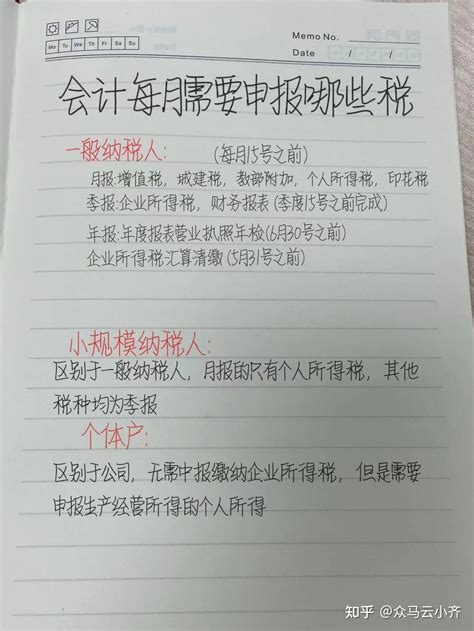 Memo No.
Mo Tu We Th Fr Sa Su
Date / /
会计每月需要申报哪些税
一般纳税人: (每月15号之前)
月报:增值税, 城建税, 教部附加, 个人所得税, 印花税
季报:企业所得税, 财务报表 (季度15号之前完成)
年报:年度报表营业执照年检(6月30号之前)
企业所得税汇算清缴(5月31号之前)
小规模纳税人:
区别于一般纳税人, 月报的只有个人所得税, 其他
税种均为季报
个体户:
区别于公司, 无需申报缴纳企业所得税, 但是需要
申报生产经营所得的个人所得
知乎 @众马云小齐